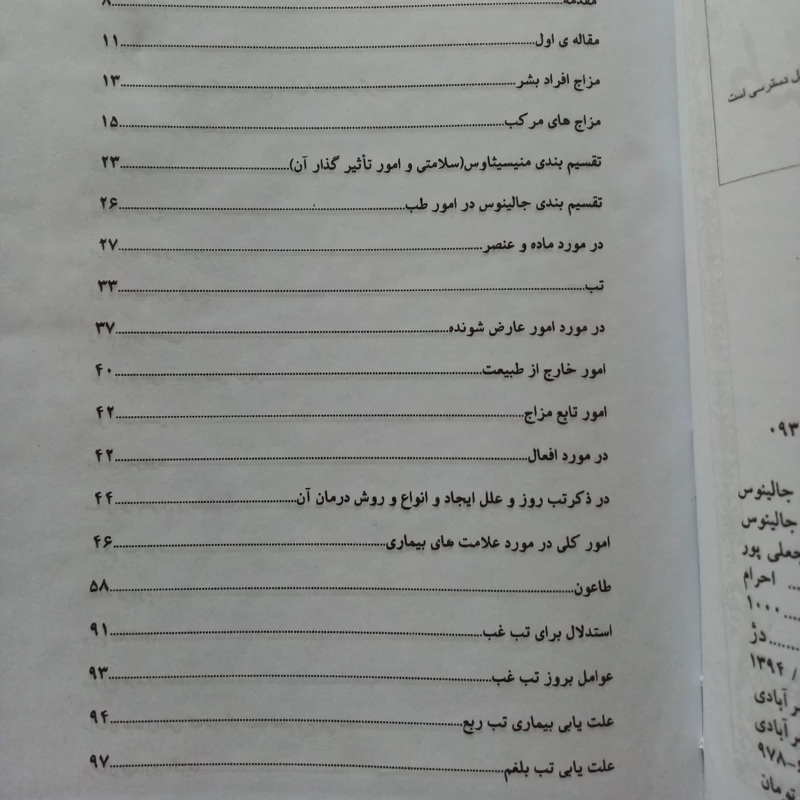 مقدمه ۸
مقاله ی اول ۱۱
مزاج افراد بشر ۱۳
مزاج های مرکب ۱۵
تقسیم بندی منیسیثاوس(سلامتی و امور تأثیر گذار آن) ۲۳
تقسیم بندی جالینوس در امور طب ۲۶
در مورد ماده و عنصر ۲۷
تب ۳۳
در مورد امور عارض شونده ۳۷
امور خارج از طبیعت ۴۰
امور تابع مزاج ۴۲
در مورد افعال ۴۲
در ذکرتب روز و علل ایجاد و انواع و روش درمان آن ۴۴
امور کلی در مورد علامت های بیماری ۴۶
طاعون ۵۸
استدلال برای تب غب ۹۱
عوامل بروز تب غب ۹۳
علت یابی بیماری تب ربع ۹۴
علت یابی تب بلغم ۹۷
دسترسی است
۰۹۳
جالینوس
جالینوس
جعلی پور
احرام
۱۰۰۰
دژ
/ ۱۳۹۴
آبادی
آبادی
۹۷۸
تومان